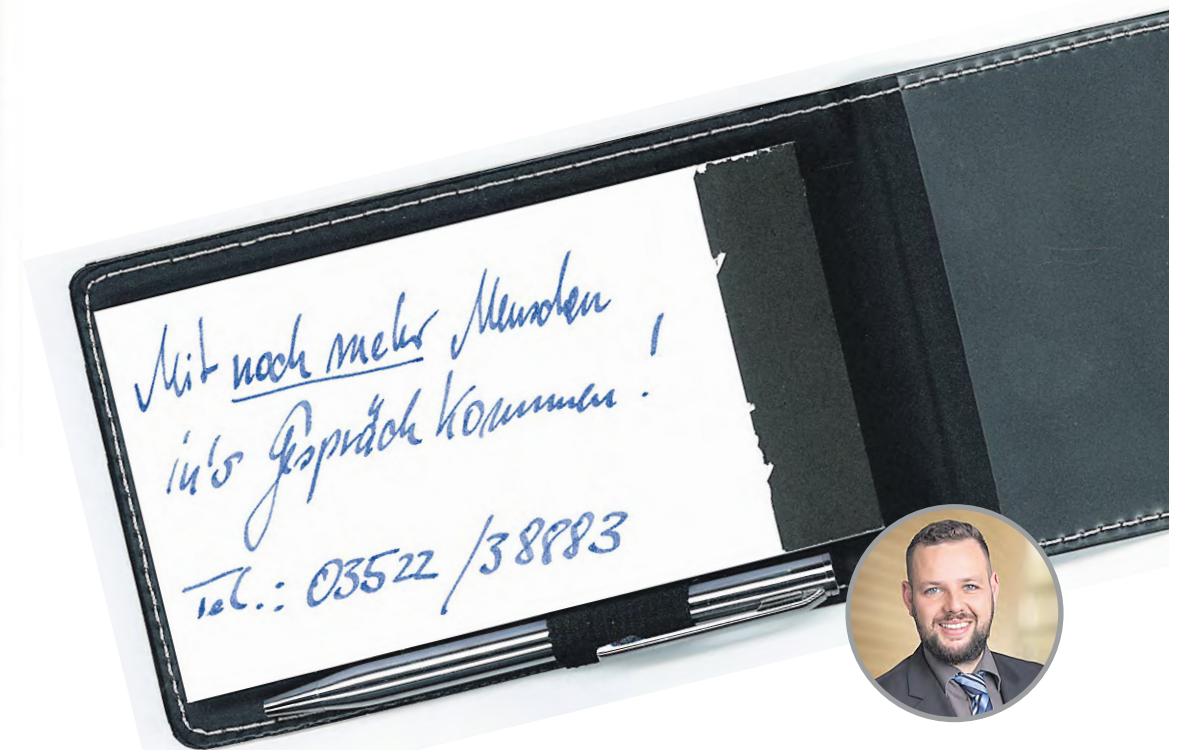 Mit noch mehr Menschen
in's Gespräch kommen!
Tel.: 03522 / 38883